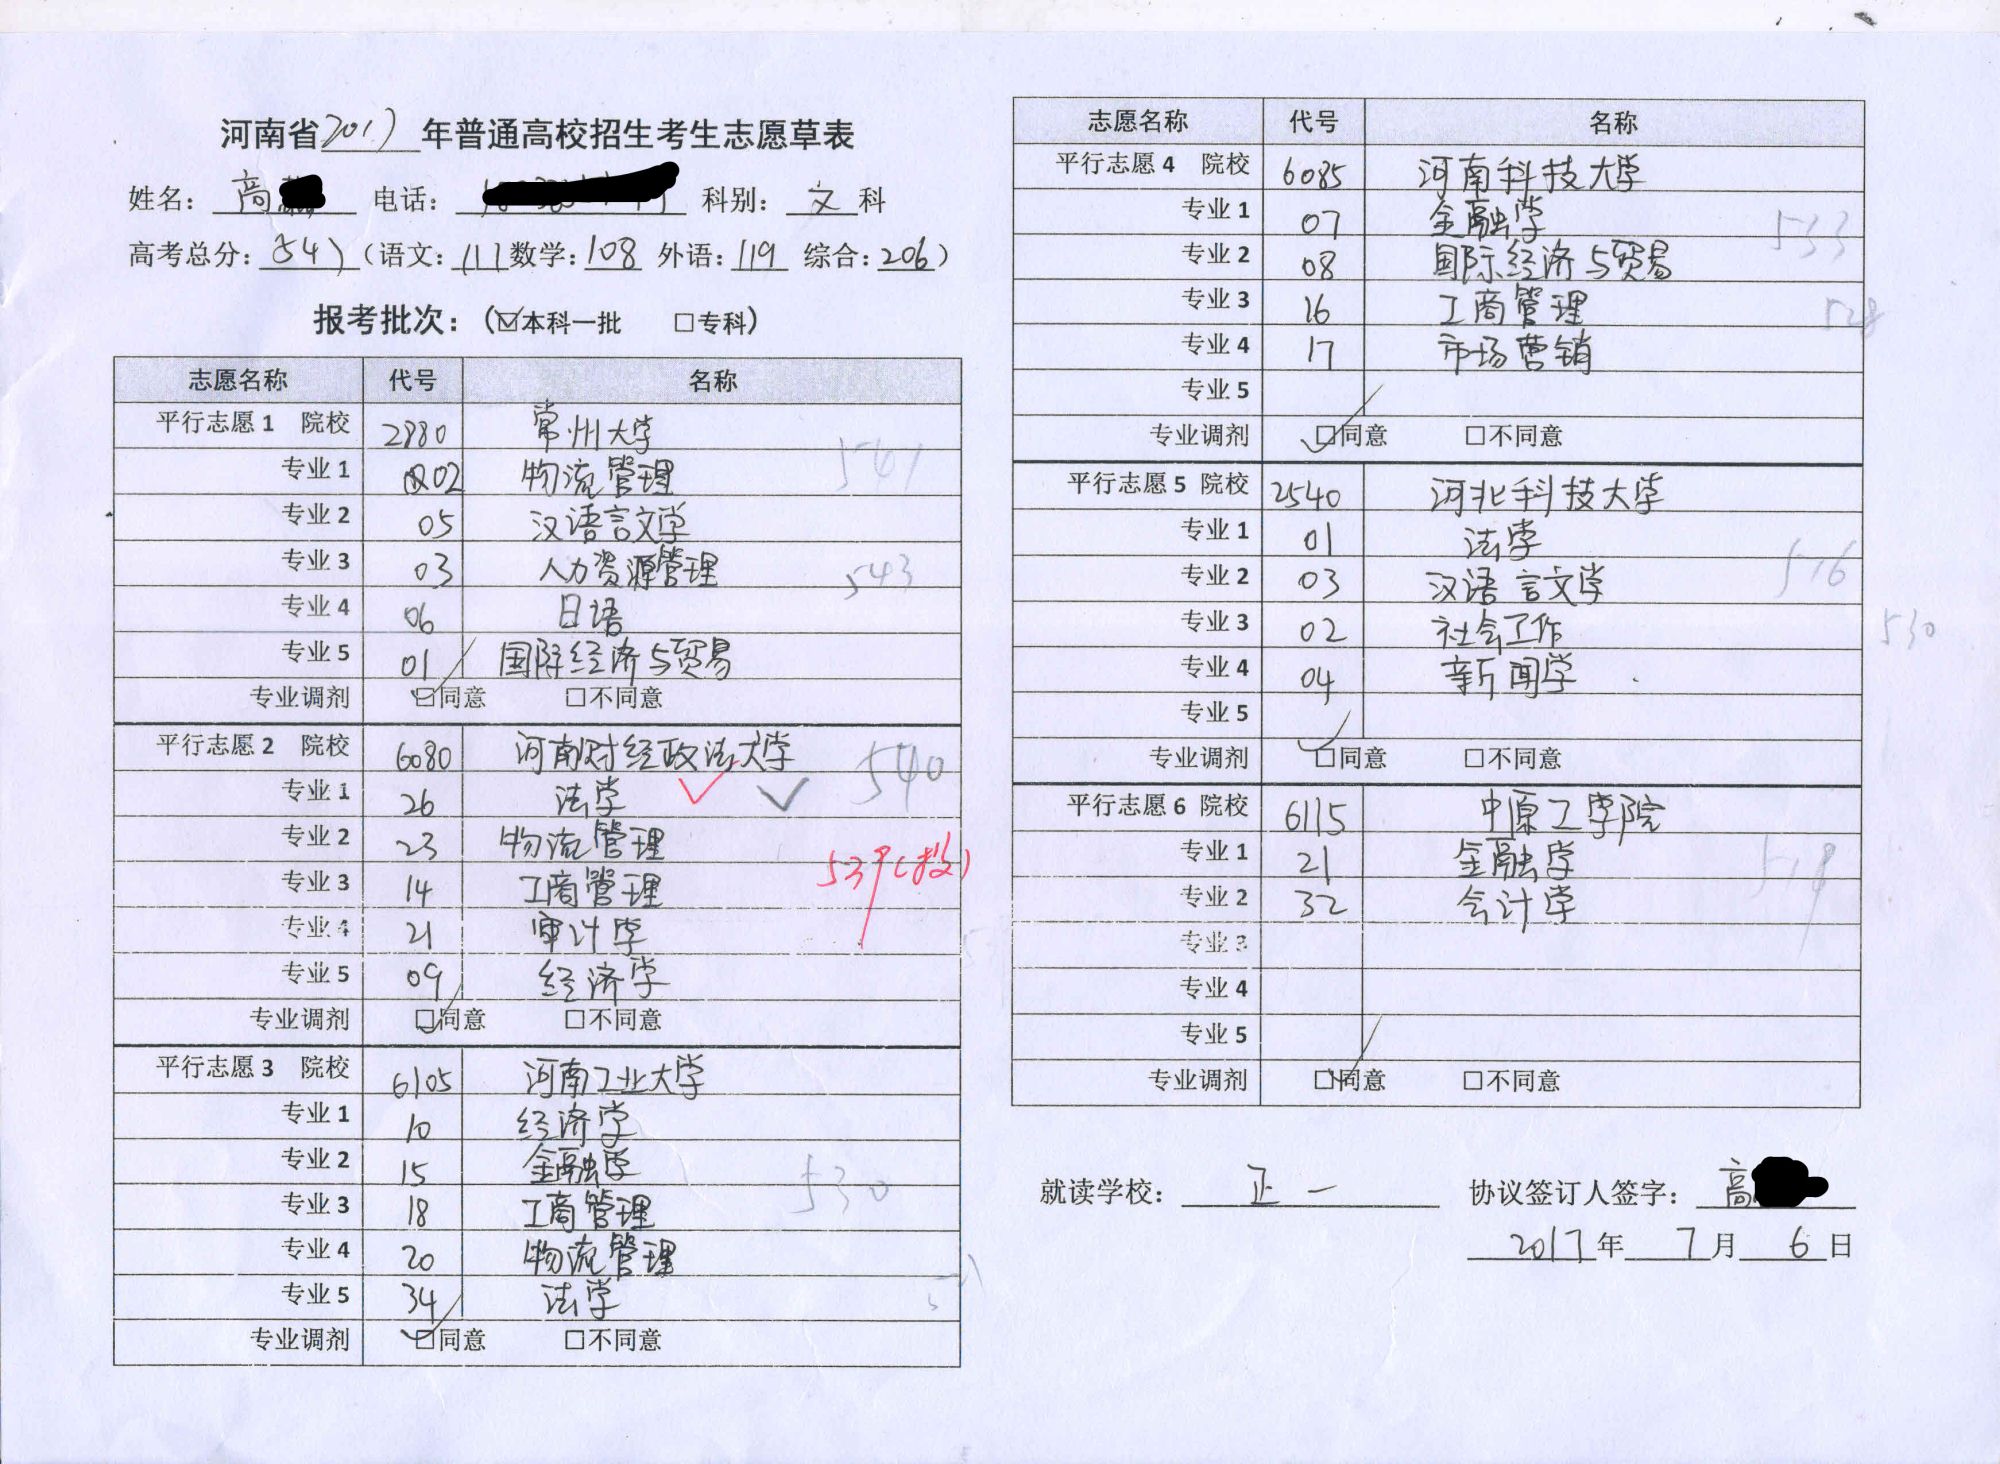 河南省2017年普通高校招生考生志愿草表
姓名：高 电话： 科别：文科
高考总分：547（语文：111 数学：108 外语：119 综合：206）
报考批次：（☑本科一批 □专科）
志愿名称 代号 名称
平行志愿1 院校 2980 常州大学
专业1 02 物流管理 541
专业2 05 汉语言文学
专业3 03 人力资源管理 543
专业4 06 日语
专业5 01 国际经济与贸易
专业调剂 ☑同意 □不同意
平行志愿2 院校 6080 河南财经政法大学 540
专业1 26 法学 ✓ ✓
专业2 23 物流管理
专业3 14 工商管理 539（投）
专业4 21 审计学
专业5 09 经济学
专业调剂 ☑同意 □不同意
平行志愿3 院校 6105 河南工业大学
专业1 10 经济学
专业2 15 金融学
专业3 18 工商管理 530
专业4 20 物流管理
专业5 34 法学
专业调剂 ☑同意 □不同意
志愿名称 代号 名称
平行志愿4 院校 6085 河南科技大学
专业1 07 金融学 533
专业2 08 国际经济与贸易
专业3 16 工商管理 528
专业4 17 市场营销
专业5
专业调剂 ☑同意 □不同意
平行志愿5 院校 2540 河北科技大学
专业1 01 法学
专业2 03 汉语言文学 516
专业3 02 社会工作 530
专业4 04 新闻学
专业5
专业调剂 ☑同意 □不同意
平行志愿6 院校 6115 中原工学院
专业1 21 金融学
专业2 32 会计学
专业3
专业4
专业5
专业调剂 ☑同意 □不同意
就读学校：正一 协议签订人签字：高
2017年7月6日